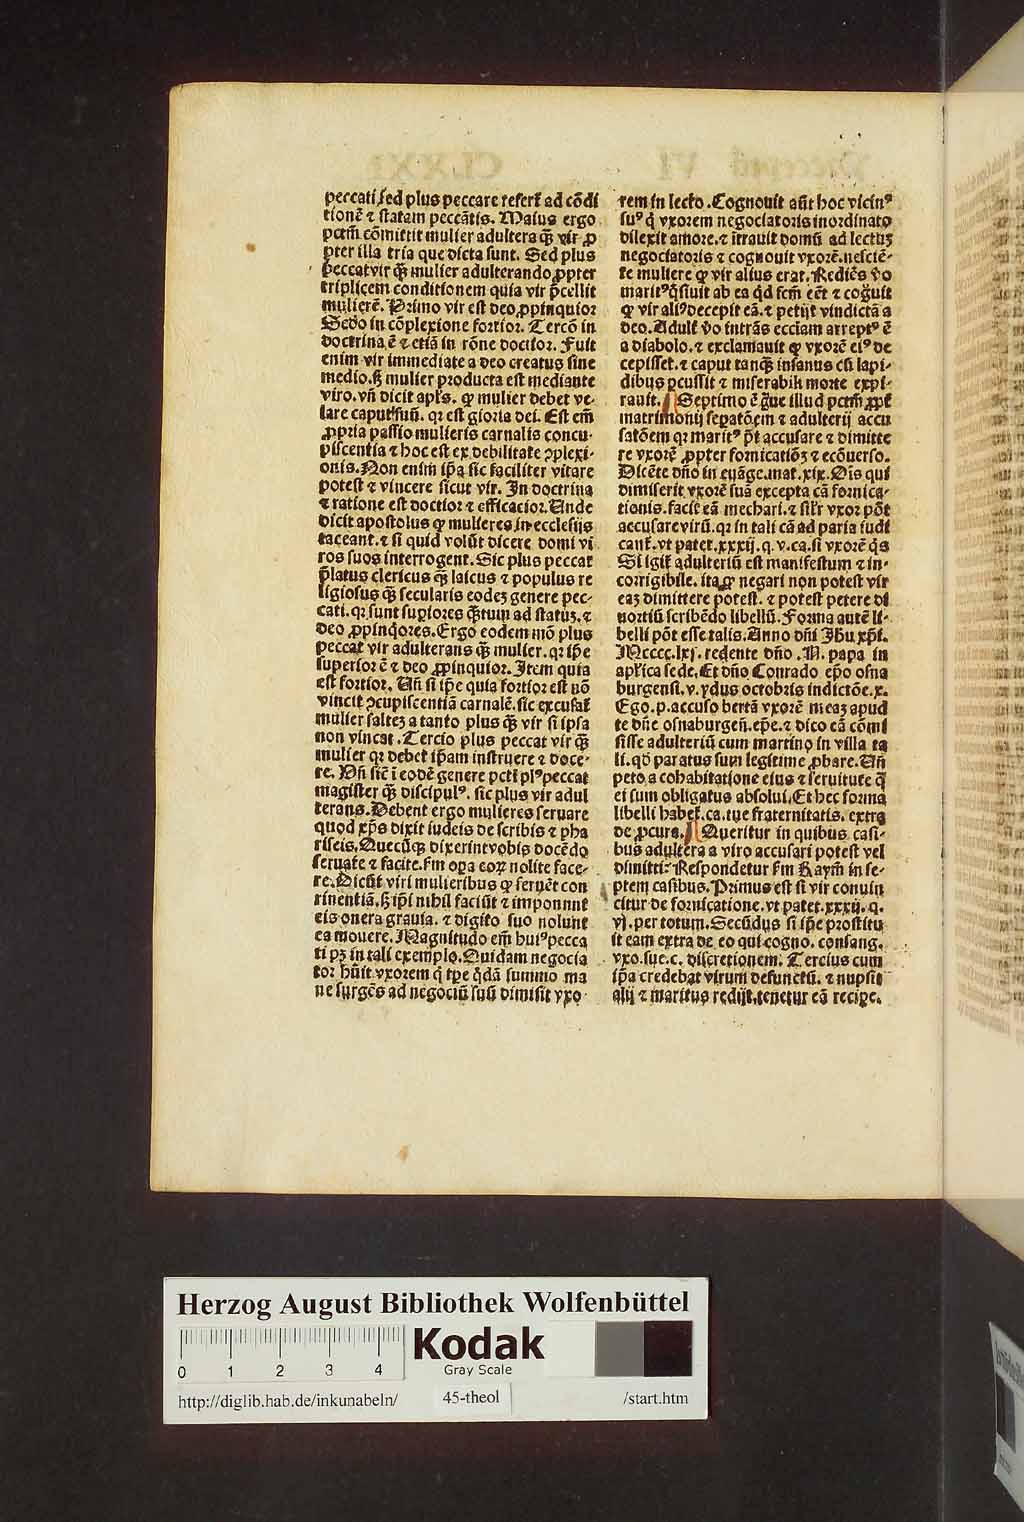 peccati sed plus peccare refert̃ ad cõdi
tionẽ ⁊ statam peccãtis. Maius ergo
pctm̃ cõmittit mulier adultera q̃ꝫ vir ꝓ
pter illa tria que dicta sunt. Sed plus
peccat vir q̃ꝫ mulier adulterando ꝓpter
triplicem conditionem quia vir p̃cellit
mulierẽ. Primo vir est deo ꝓpinquior
Scdo in cõplexione fortior. Tercõ in
doctrina ẽ ⁊ etiã in rõne doctior. Fuit
enim vir immediate a deo creatus sine
medio. sꝫ mulier producta est mediante
viro. vñ dicit apl̃s. ꝙ mulier debet ve-
lare caput suũ. qꝛ est gloria dei. Est em̃
ꝓpria passio mulieris carnalis concu-
piscentia ⁊ hoc est ex debilitate ꝯplexi-
onis. Non enim ip̃a sic faciliter vitare
potest ⁊ vincere sicut vir. In doctrina
⁊ ratione est doctior ⁊ efficacior. Unde
dicit apostolus ꝙ mulieres in ecclesijs
taceant. ⁊ si quid volũt dicere domi vi
ros suos interrogent. Sic plus peccat
p̃latus clericus q̃ꝫ laicus ⁊ populus re
ligiosus q̃ꝫ secularis eodeꝫ genere pec-
cati. qꝛ sunt supiores q̃ꝫtum ad statuꝫ. ⁊
deo ꝓpinq̃ores. Ergo eodem mõ plus
peccat vir adulterans q̃ꝫ mulier. qꝛ ip̃e
superior ẽ ⁊ deo ꝓpinquior. Item quia
est fortior. Uñ si ip̃e quia fortior est nõ
vincit ꝯcupiscentiã carnalẽ. sic excusat̃
mulier salteꝫ a tanto plus q̃ꝫ vir si ipsa
non vincat. Tercio plus peccat vir q̃ꝫ
mulier qꝛ debet ip̃am instruere ⁊ doce-
re. Uñ sic̃ ĩ eodẽ genere pcti plꝰ peccat
magister q̃ꝫ discipulꝰ. sic plus vir adul
terans. Debent ergo mulieres seruare
quod xp̃s dixit iudeis de scribis ⁊ pha
riseis. Quecũqꝫ dixerint vobis docẽdo
seruate ⁊ facite. s̃m oꝑa eoꝝ nolite face-
re. Dicũt viri mulieribus ꝙ seruẽt con
tinentiã. sꝫ ip̃i nihil faciũt ⁊ imponunt
eis onera grauia. ⁊ digito suo nolunt
ea mouere. Magnitudo em̃ huiꝰ pecca
ti pꝫ in tali exemplo. Quidam negocia
tor hũit vxorem q̃ tꝑe q̃dã summo ma
ne surgẽs ad negociũ suũ dimisit vxo
rem in lecto. Cognouit aũt hoc vicinꝰ
suꝰ q̃ vxorem negociatoris inordinato
dilexit amore. ⁊ ĩtrauit domũ ad lectuꝫ
negociatoris ⁊ cognouit vxorẽ. nesciẽ-
te muliere ꝙ vir alius erat. Rediẽs ṽo
maritꝰ q̃siuit ab ea q̃d fcm̃ eẽt ⁊ cog̃uit
ꝙ vir aliꝰ decepit eã. ⁊ petijt vindictã a
deo. Adult̃ ṽo intrãs eccl̃iam arreptꝰ ẽ
a diabolo. ⁊ exclamauit ꝙ vxorẽ eiꝰ de
cepisset. ⁊ caput tanq̃ꝫ insanus cũ lapi-
dibus ꝑcussit ⁊ miserabili morte expi-
rauit. Septimo ẽ g̃ue illud pctm̃ ꝓpt̃
matrimonij seꝑatõem ⁊ adulterij accu
satõem qꝛ maritꝰ põt accusare ⁊ dimitte
re vxorẽ ꝓpter fornicatiõꝫ ⁊ ecõuerso.
Dicẽte dño in euãge. mat. xix. Oĩs qui
dimiserit vxorẽ suã excepta cã fornica-
tionis. facit eã mechari. ⁊ sil̃r vxor põt
accusare virũ. qꝛ in tali cã ad paria iudi
cant̃. vt patet. xxxij. q. v. ca. si vxorẽ q̃s
Si igit̃ adulteriũ est manifestum ⁊ in-
corrigibile. ita ꝙ negari non potest vir
eaꝫ dimittere potest. ⁊ potest petere di
uortiũ scribẽdo libellũ. Forma autẽ li-
belli põt esse talis. Anno dñi Ih̃u xp̃i.
Mcccc.lxj. redente dño. N. papa in
apl̃ica sede. Et dño Conrado ep̃o osna
burgensi. v. ydus octobris indictõe. x.
Ego. p. accuso bertã vxorẽ meaꝫ apud
te dñe osnaburgeñ. ep̃e. ⁊ dico eã cõmi
sisse adulteriũ cum martino in villa ta
li. qõ paratus sum legitime ꝓbare. Uñ
peto a cohabitatione eius ⁊ seruitute q̃
ei sum obligatus absolui. Et hec forma
libelli habet̃. ca. tue fraternitatis. extra
de ꝓcura. Queritur in quibus casi-
bus adultera a viro accusari potest vel
dimitti? Respondetur s̃m Raym̃ in se-
ptem casibus. Primus est si vir conuin
citur de fornicatione. vt patet. xxxij. q.
vj. per totum. Secũdus si ip̃e prostitu
it eam extra de eo qui cogno. consang.
vxo. sue. c. discretionem. Tercius cum
ip̃a credebat virum defunctũ. ⁊ nupsit
alij ⁊ maritus redijt. tenetur eã reciꝑe.
Herzog August Bibliothek Wolfenbüttel
0 1 2 3 4
Kodak
Gray Scale
http://diglib.hab.de/inkunabeln/ 45-theol /start.htm